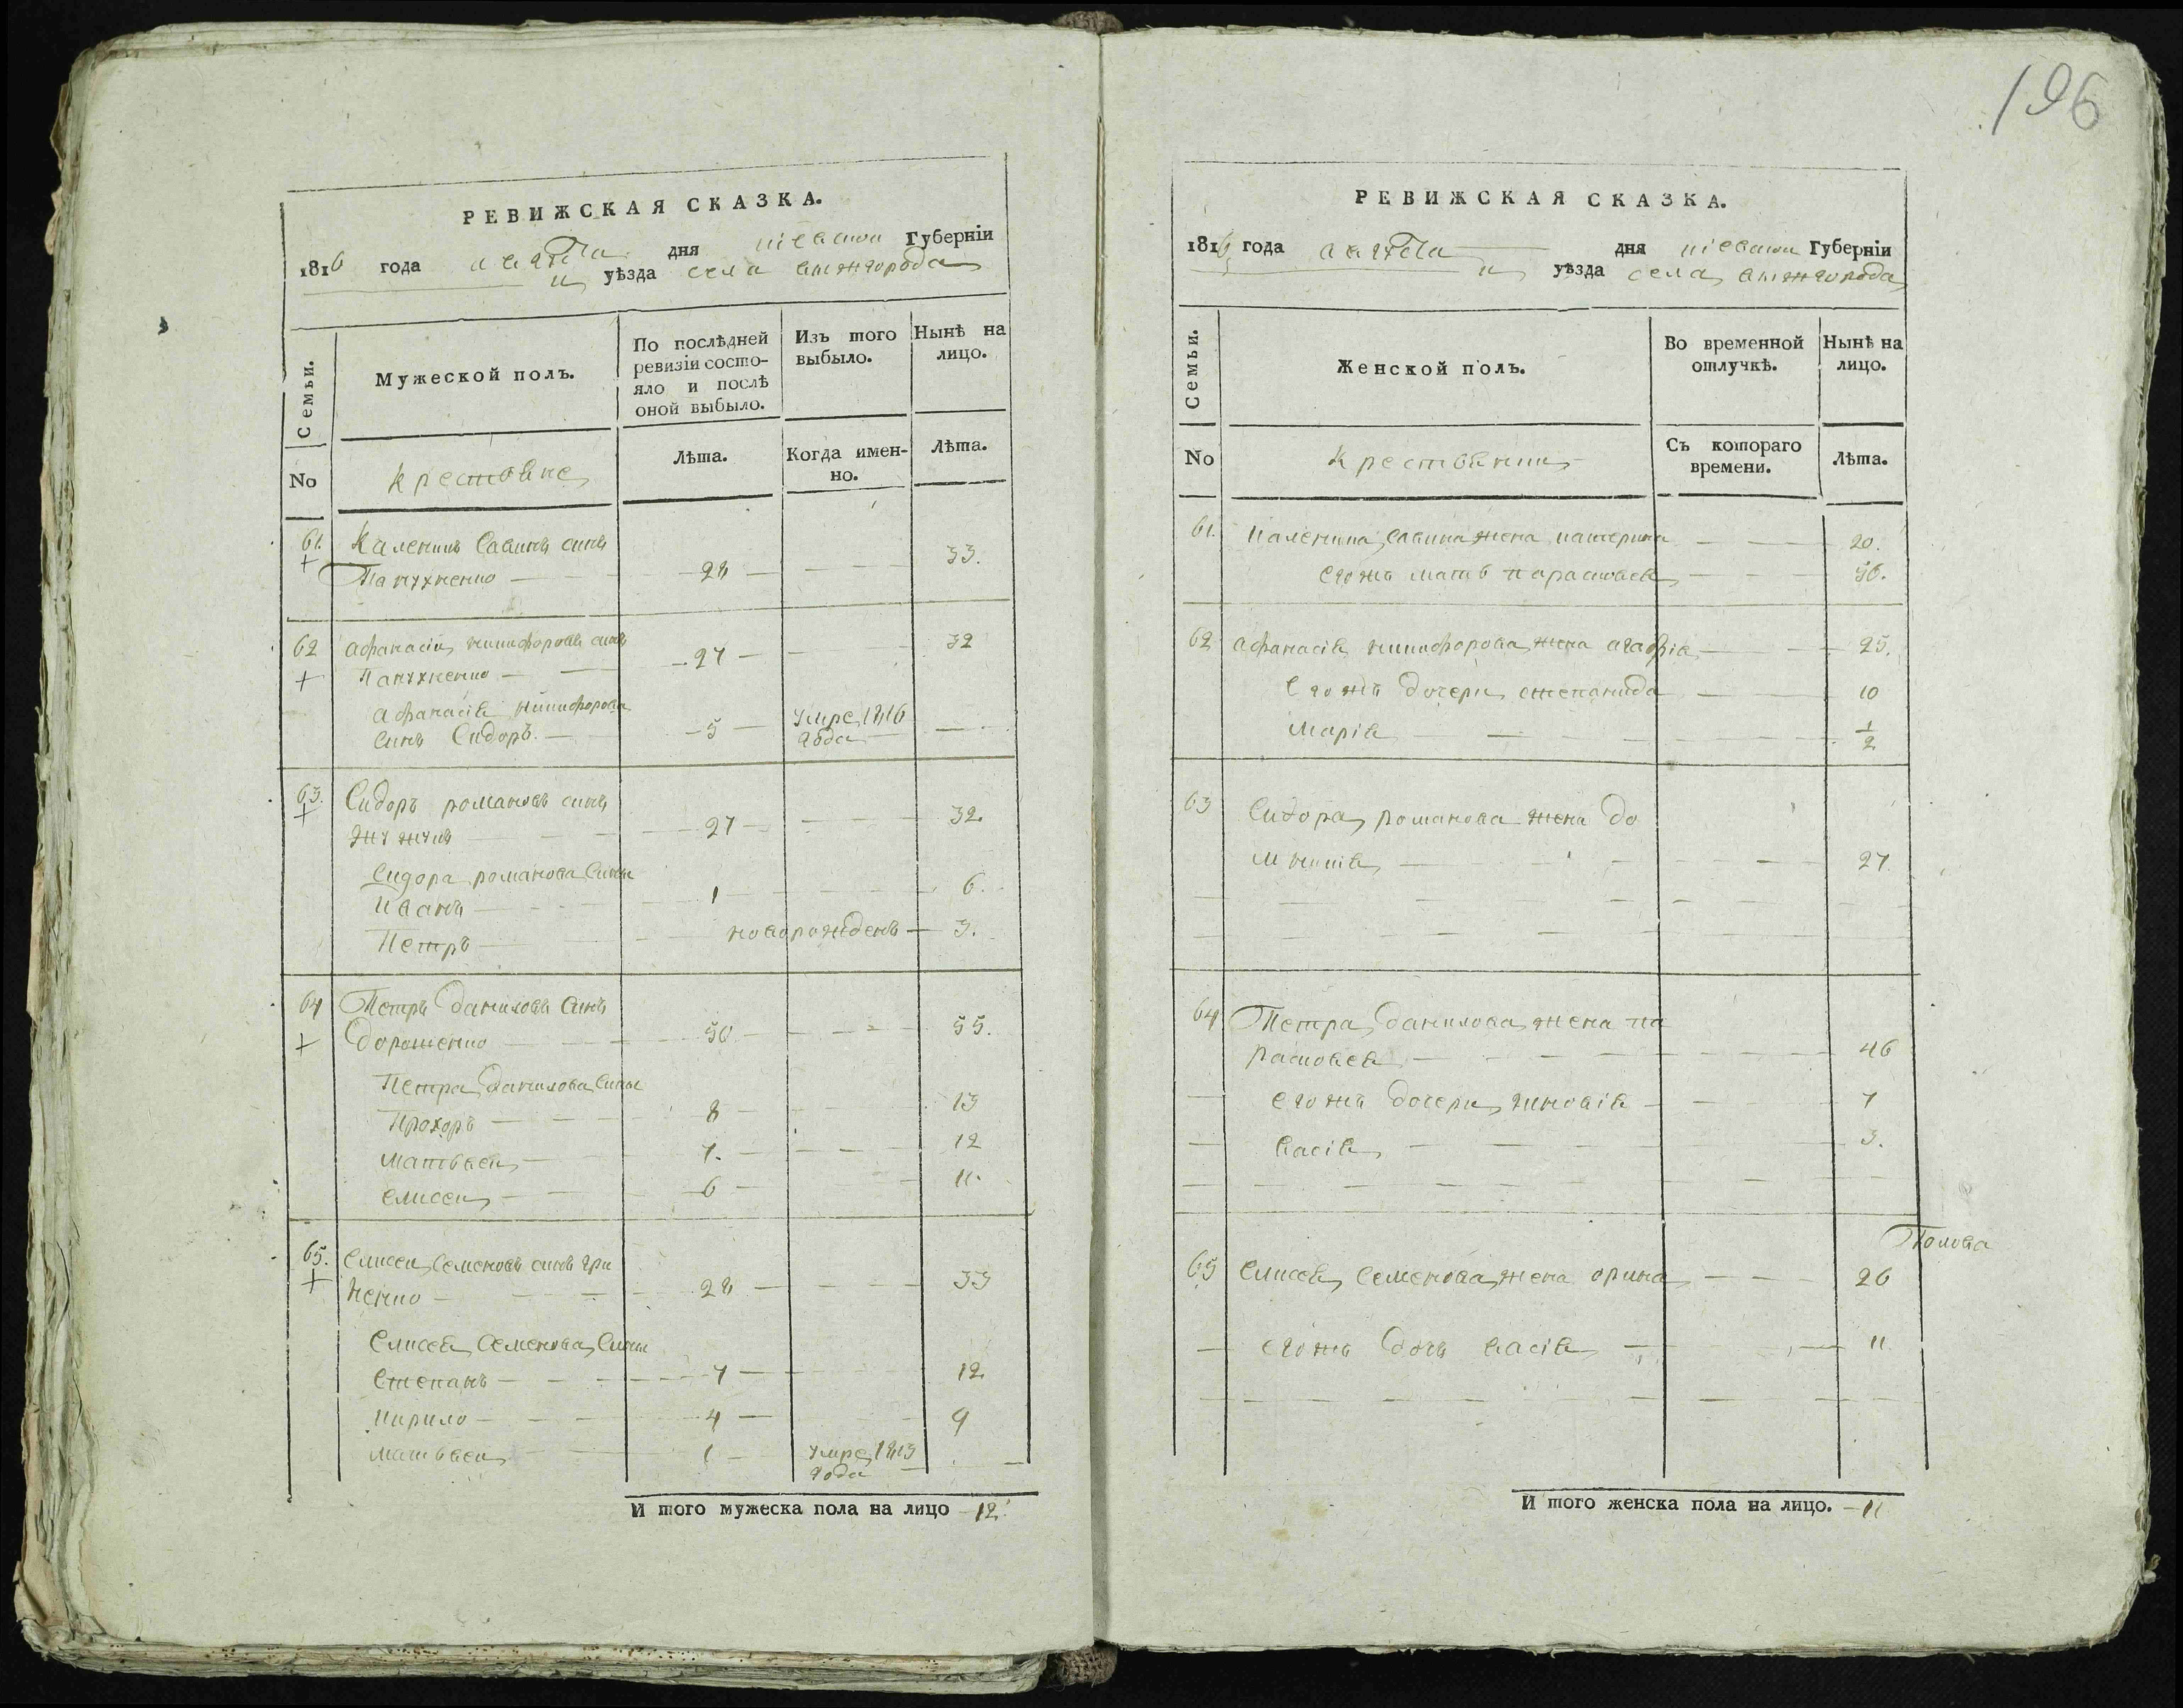 РЕВИЖСКАЯ СКАЗКА.
1816 года августа дня кіевской Губерніи
уѣзда села вишгорода
Семьи. Мужеской полъ. По послѣдней ревизіи состояло и послѣ оной выбыло. Изъ того выбыло. Нынѣ на лицо.
No крестьяне Лѣта. Когда именно. Лѣта.
61. Каленикъ Савинъ синъ
Панухненко 28 33.
62 афанасій никифоровъ синъ
Панухненко 27 32
афанасія никифорова
синъ Сидоръ 5 умре 1816 года
63. Сидоръ романовъ синъ
27 32.
Сидора романова сины
Иванъ 1 6.
Петръ новорожденъ 3.
64 Петръ даниловъ синъ
дорошенко 50 55.
Петра данилова сины
Прохоръ 8 13
матвѣей 7. 12
елисей 6 11.
65. елисей семеновъ синъ гри
ненко 28 33
елисея семенова сины
степанъ 7 12
кирило 4 9
матвѣей 1 умре 1813 года
И того мужеска пола на лицо 12
196
РЕВИЖСКАЯ СКАЗКА.
1816 года августа дня кіевской Губерніи
уѣзда села вишгорода
Семьи. Женской полъ. Во временной отлучкѣ. Нынѣ на лицо.
No крестьянки Съ котораго времени. Лѣта.
61. каленика савина жена катерина 20.
егожъ мать параскевія 56.
62 афанасія никифорова жена агафія 25.
егожъ дочери степанида 10
марія 1/2
63 Сидора романова жена до
мникія 27
64 Петра данилова жена па
раскевія 46
егожъ дочери зиновія 7
васія 3.
65 елисея семенова жена орина 26
егожъ дочь васія 11
И того женска пола на лицо. 11